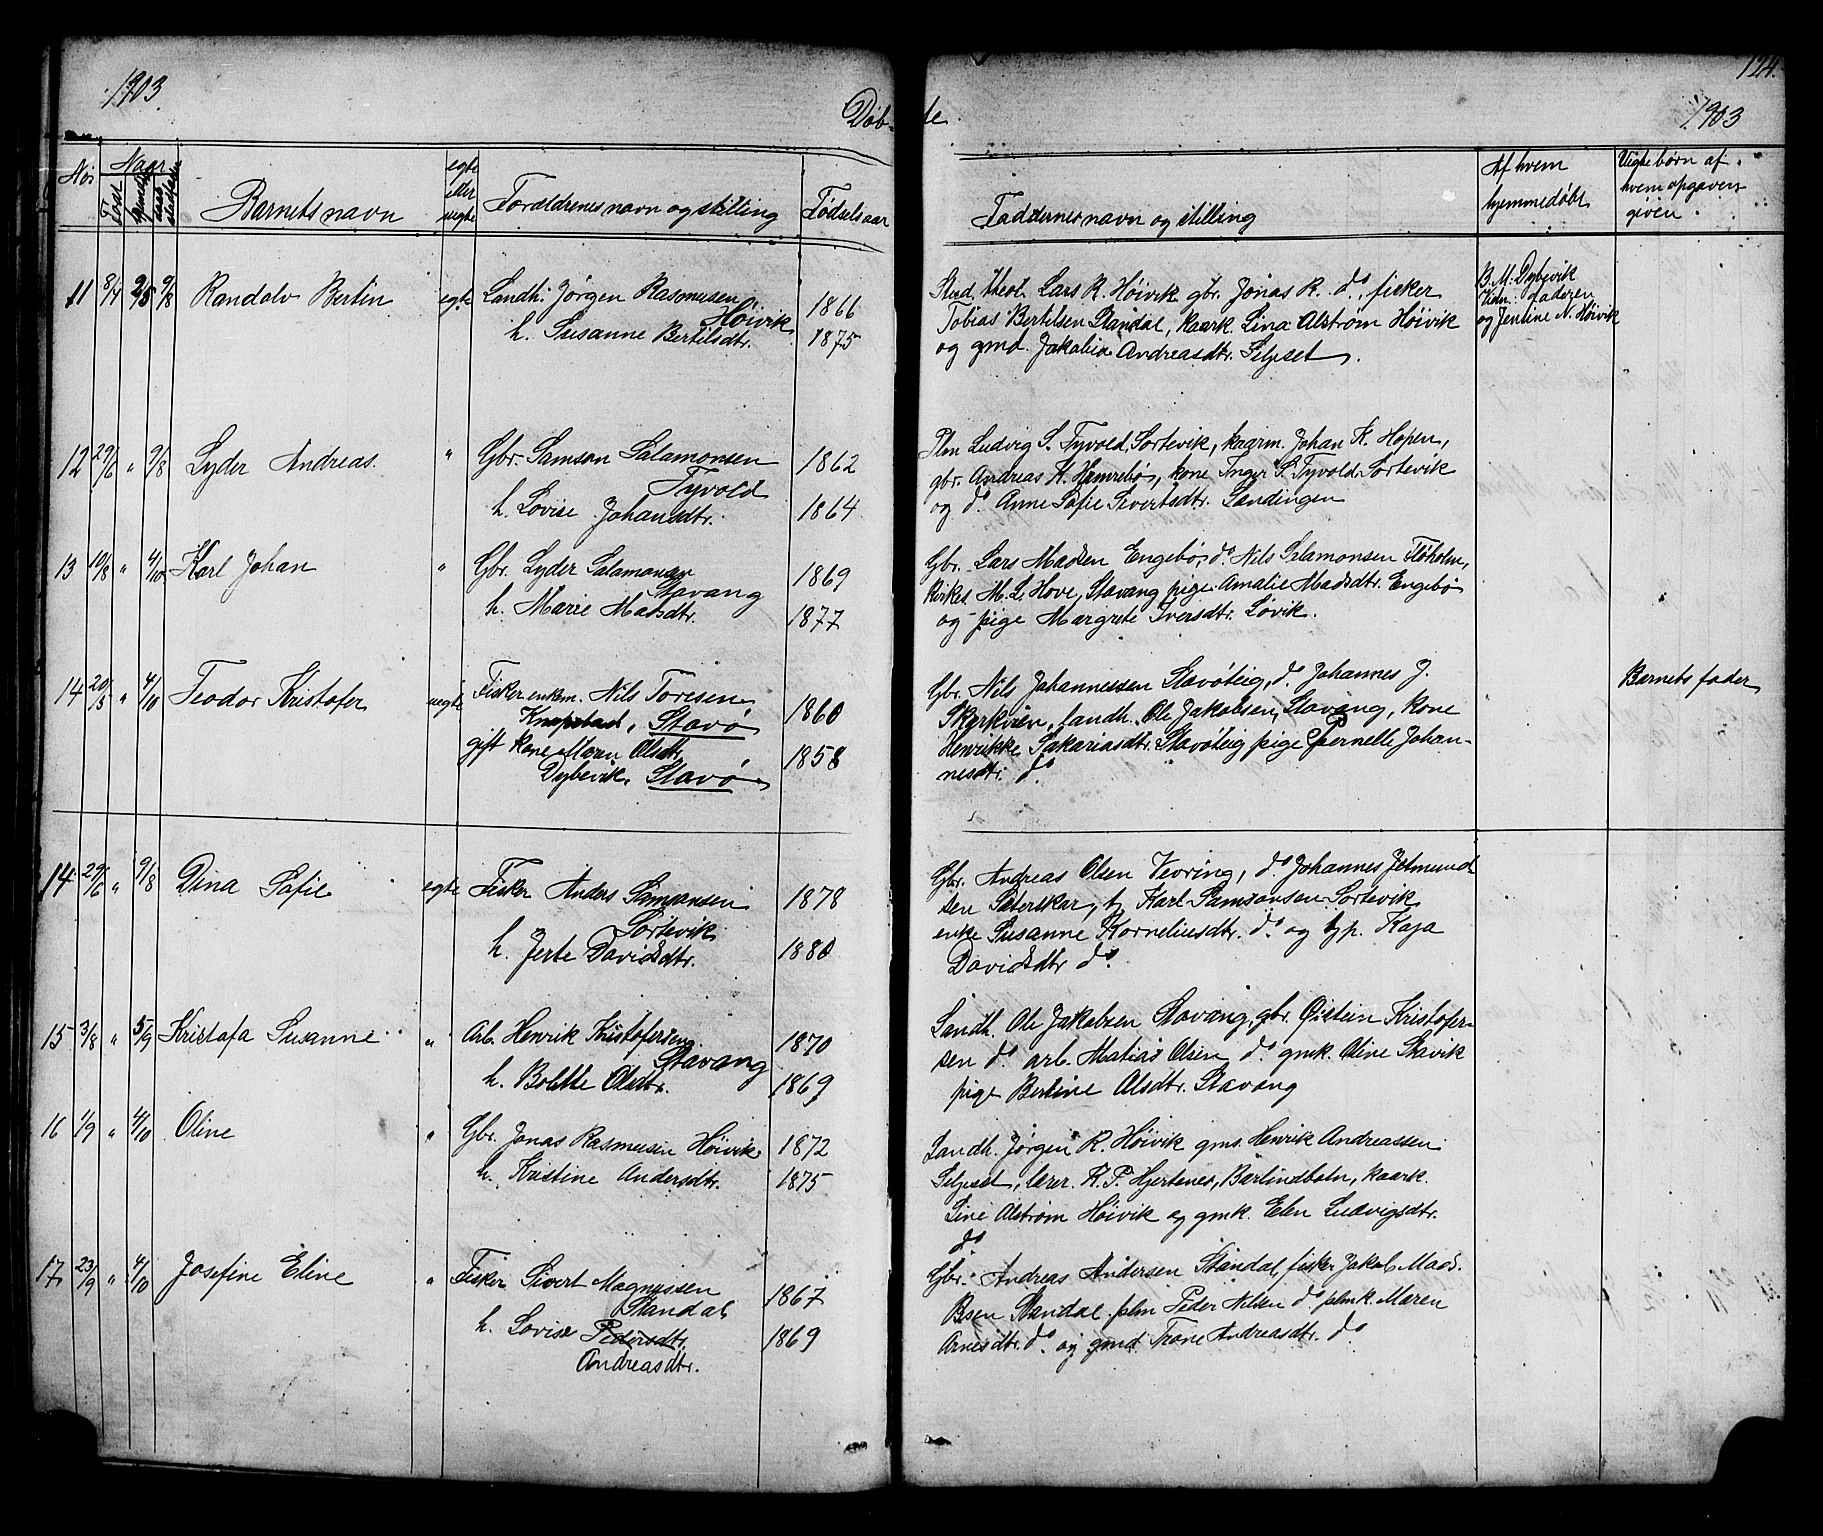 1903.
124.
Døb-
te.
1903
No:
Naar
født
stadfæstet
Barnets navn
egte
eller
uegte
Forældrenes navn og stilling
Fødselsaar
Faddernes navn og stilling
Af hvem
hjemmedøbt
Uegte børn af
hvem opgaven
given.
11 8/4 9/8 Randolv Bertin egte Landh. Jørgen Rasmusen
Høivik 1866
h. Susanne Bertilsdtr. 1875
Stud. theol. Lars R. Høivik gbr. Jonas R. do., fisker
Tobias Bertelsen Standal, kaark. Lina Alstrøm Høivik
og gmd. Jakobine Andreasdtr. Selpset.
B. M. Dybevik
Vidn. faderen
og Jentine N. Høivik
12 29/6 " 9/8 Lyder Andreas. " Gbr. Samson Salamonsen 1862
Tyvold
h. Lovise Johansdtr. 1864
Plm Ludvig S. Tyvold, Sortevik, kaarm. Johan K. Hopen,
gbr. Andreas H. Hamrebø, kone Inger S. Tyvold Sortevik
og do. Anne Sofie Sivertsdtr. Sandingen
13 10/8 " 4/10 Karl Johan " Gbr. Lyder Salamonsen 1869
Stavang
h. Marie Madsdtr. 1877
Gbr. Lars Madsen Engebø, do Nils Salamonsen Fløholm,
kirkes. M. L. Hove, Stavang pige Amalie Madsdtr. Engebø
og pige Margrete Iversdtr. Løvik.
14 20/5 " 4/10 Teodor Kristofer uegte Fisker enkem. Nils Toresen
Knapstad, Stavø 1860
gift kone Maren Olsdtr.
Dybevik, Stavø 1858
Gbr. Nils Johannessen Stavøteig, do Johannes J.
Skorkvien, landh. Ole Jakobsen, Stavang, kone
Henrikke Sakariasdtr. Stavøteig pige Pernelle Johan-
nesdtr. do
Barnets fader
14 29/6 " 9/8 Dina Sofie egte Fisker Anders Samsonsen 1878
Sortevik
h. Jerte Davidsdtr. 1880
Gbr. Andreas Olsen Vevring, do Johannes Jetmund-
sen Sæterskar, t, Karl Samsonsen Sortevik
enke Susanne Korneliusdtr. do og tjp. Kaja
Davidsdtr do.
15 3/8 " 5/9 Kristofa Susanne " Arb. Henrik Kristofersen 1870
Stavang
h. Bolette Olsdtr. 1869
Landh. Ole Jakobsen Stavang, gbr. Øistein Kristofer-
sen do arb. Matias Olsen do. gmk. Oline Stavik
pige Bertine Olsdtr. Stavang
16 1/9 " 4/10 Oline " Gbr. Jonas Rasmusen Høivik 1872
h. Kristine Andersdtr. 1875
Landh. Jørgen R. Høivik gms. Henrik Andreassen
Selpset, lærer. K. P. Hjertenes, Barlindbotn, kaark.
Line Alstrøm Høivik og gmk. Elen Ludvigsdtr.
do
17 23/9 " 4/10 Josefine Eline " Fisker Sivert Magnussen 1867
Standal
h. Lovise Pedersdtr. 1869
Andreasdtr.
Gbr. Andreas Andersen Standal, fisker Jakob Mad.
Olsen Standal plm Peder Nilsen do plmk. Maren
Arnesdtr. do. og gmd. Trone Andreasdtr. do